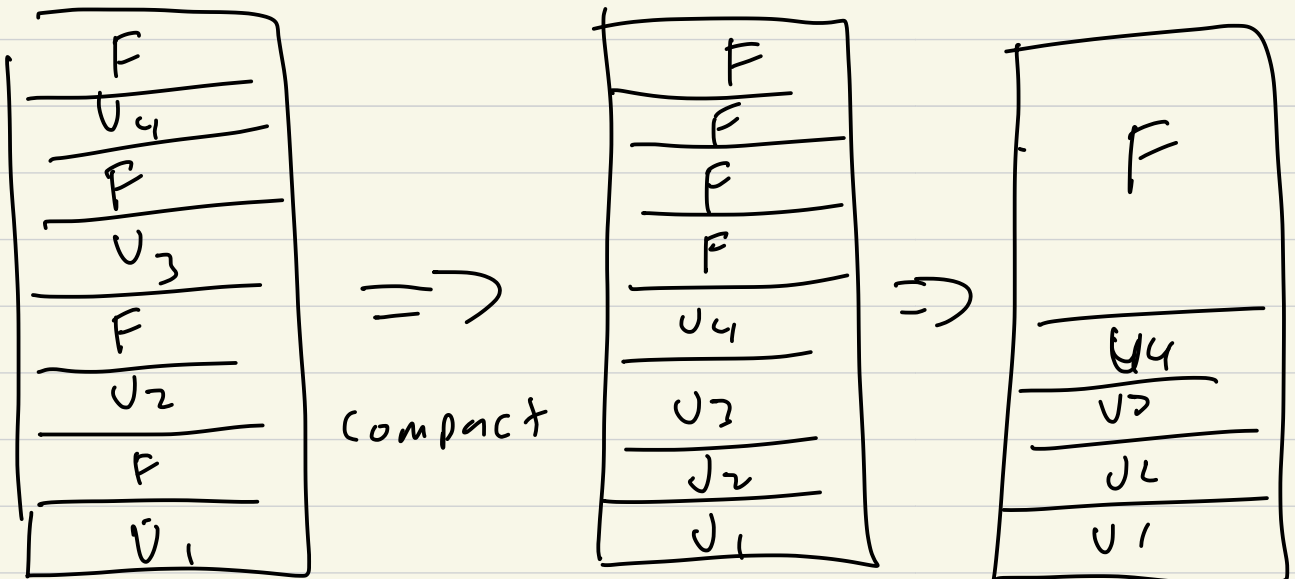 F
U4
F
U3
F
U2
F
U1
=>
compact
F
F
F
F
U4
U3
U2
U1
=>
F
U4
U3
U2
U1